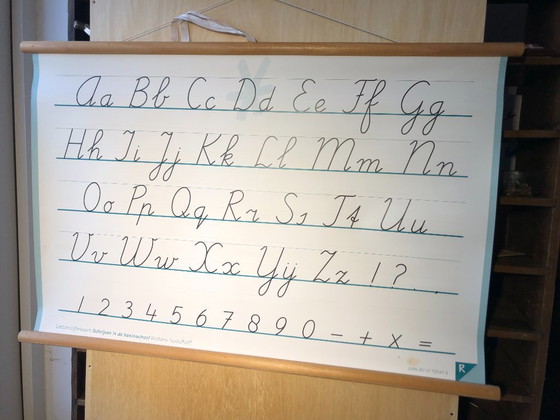 Aa Bb Cc Dd Ee Ff Gg
Hh Ii Jj Kk Ll Mm Nn
Oo Pp Qq Rr Ss Tt Uu
Vv Ww Xx Yÿ Zz ! ? . .
1 2 3 4 5 6 7 8 9 0 - + x =
Schrijven in de basisschool
R